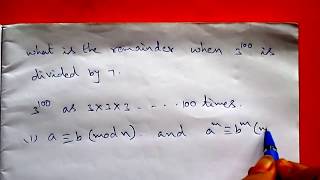 what is the remainder when 3^100 is
divided by 7.
3^100 as 3x3x3 - - - - - 100 times.
(1) a ≡ b (mod n). and a^m ≡ b^m (m